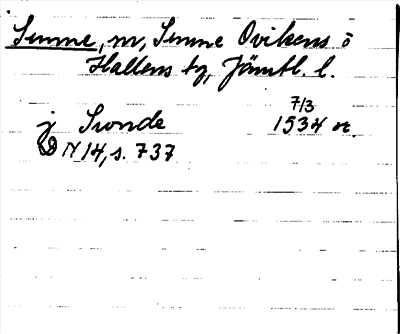 Sunne, m, Sunne Ovikens o
Hallens tg, Jämtl. l.
7/3
j Swnde 1534 or.
N 14, s. 737